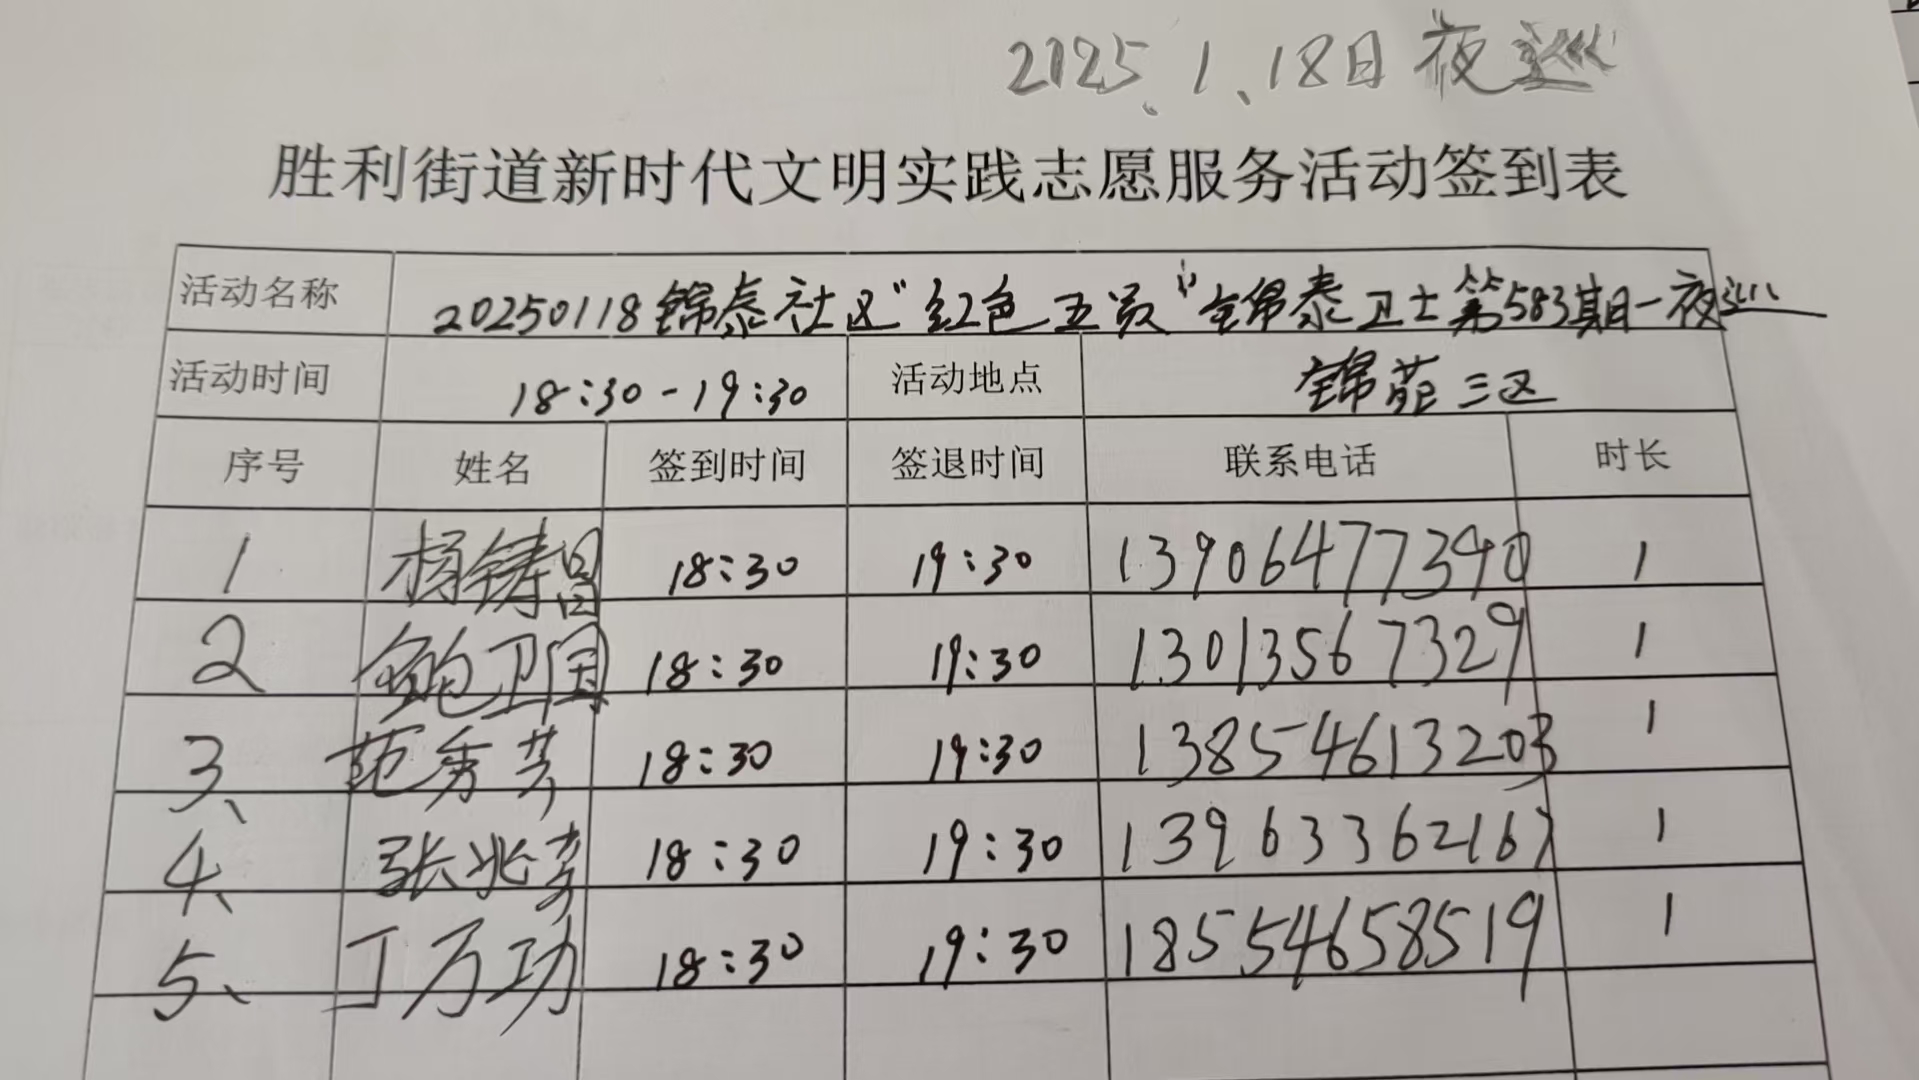 2025.1.18日夜巡
胜利街道新时代文明实践志愿服务活动签到表
活动名称 20250118锦泰社区"红色五员"锦泰卫士第583期—夜巡
活动时间 18:30-19:30 活动地点 锦苑三区
序号 姓名 签到时间 签退时间 联系电话 时长
1 杨铸昌 18:30 19:30 13906477390 1
2 鲍卫国 18:30 19:30 13013567329 1
3、 范秀芳 18:30 19:30 13854613203 1
4、 张兆孝 18:30 19:30 13963362167 1
5、 丁万功 18:30 19:30 18554658519 1